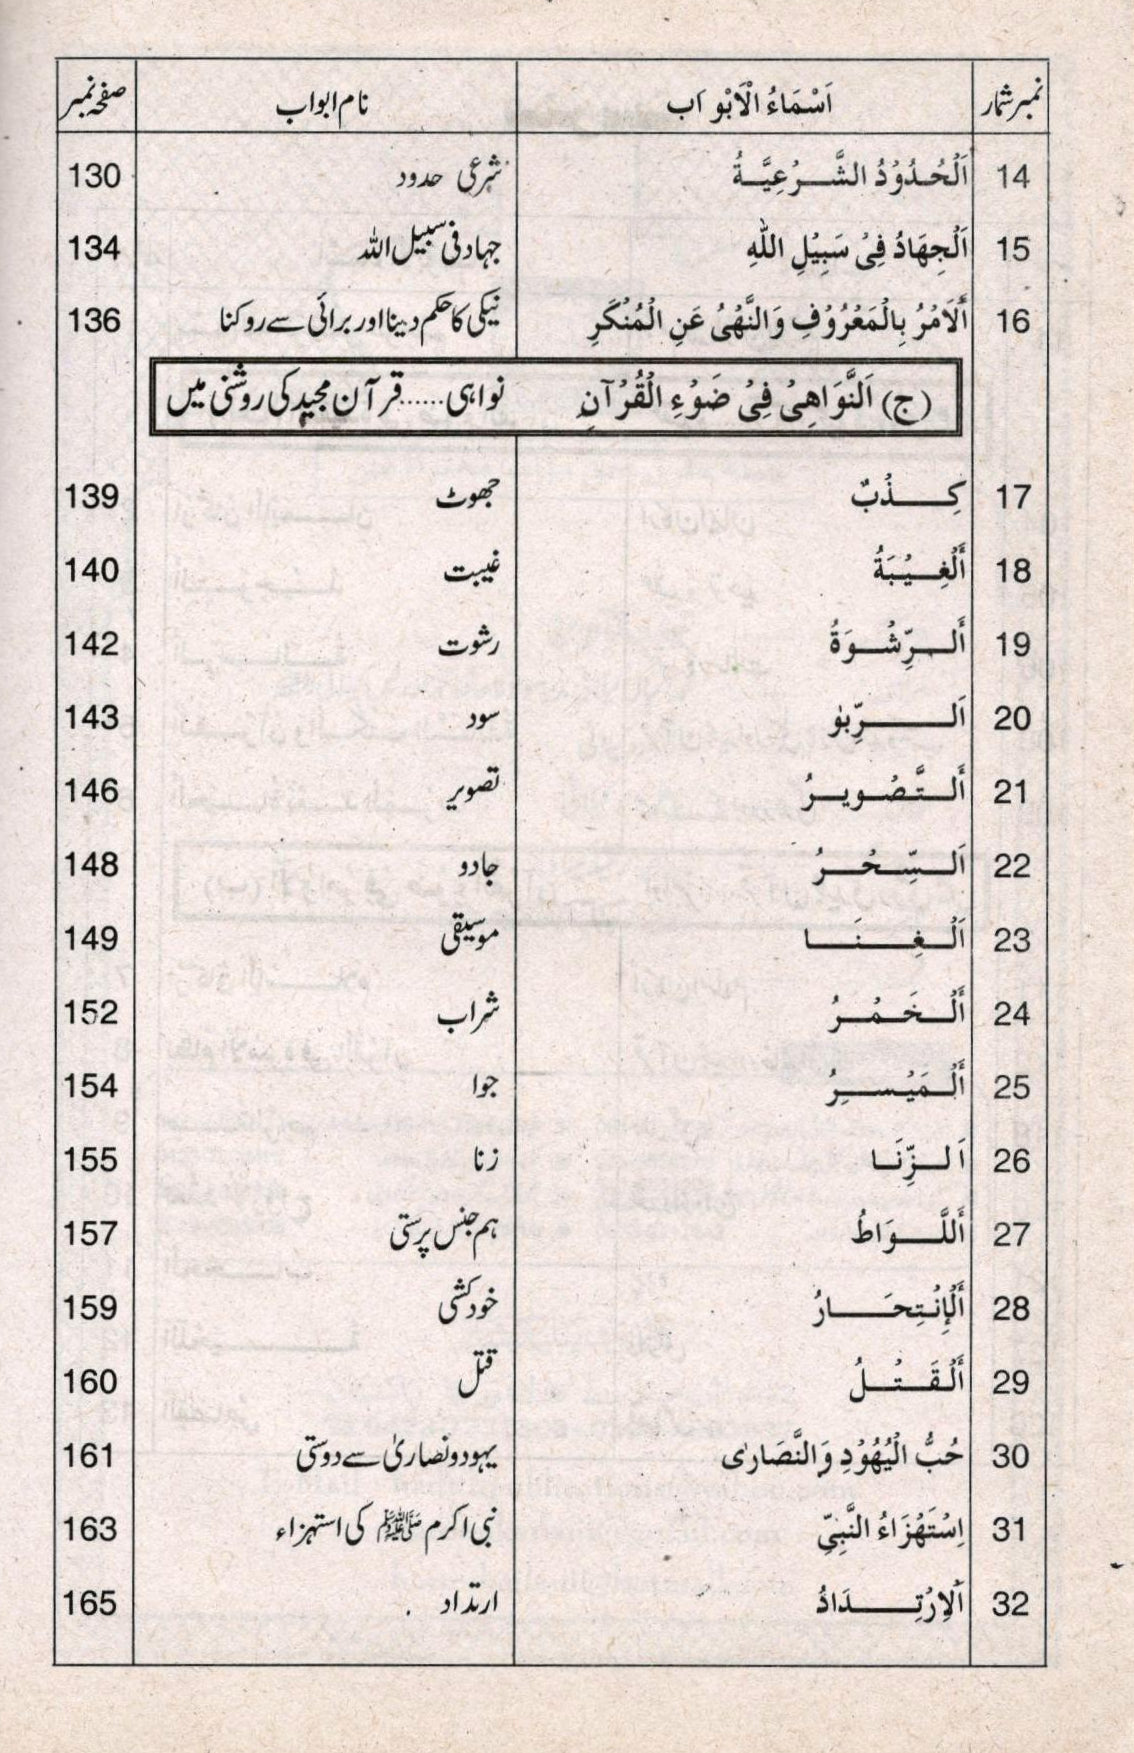 نمبر شمار اَسْمَاءُ الْاَبْوَاب نام ابواب صفحہ نمبر
14 اَلْحُدُوْدُ الشَّـــرْعِيَّـةُ شرعی حدود 130
15 اَلْجِهَادُ فِىْ سَبِيْلِ اللّٰهِ جہاد فی سبیل اللہ 134
16 أَلَامْرُ بِالْمَعْرُوْفِ وَالنَّهْىُ عَنِ الْمُنْكَرِ نیکی کا حکم دینا اور برائی سے روکنا 136
(ج) اَلنَّوَاهِىْ فِىْ ضَوْءِ الْقُرْآنِ نواہی......قرآن مجید کی روشنی میں
17 كِــــذْبٌ جھوٹ 139
18 أَلْغِــيْبَةُ غیبت 140
19 أَلــرِّشْــوَةُ رشوت 142
20 اَلـــــرِّبٰو سود 143
21 أَلـتَّصْـويـرُ تصویر 146
22 اَلسِّـحْــرُ جادو 148
23 اَلْــغِـــنَـــا موسیقی 149
24 أَلْـخَـمْـرُ شراب 152
25 أَلْـمَيْـسـرُ جوا 154
26 اَلــزِّنَـا زنا 155
27 أَللَّــوَاطُ ہم جنس پرستی 157
28 أَلْإِنْـتِحَـــارُ خودکشی 159
29 أَلْـقَـتْـلُ قتل 160
30 حُبُّ الْيُهُوْدِ وَالنَّصَارٰى یہود و نصاریٰ سے دوستی 161
31 اِسْتَهْزَاءُ النَّبِىِّ نبی اکرم ﷺ کی استہزاء 163
32 اَلْاِرْتِـــدَادُ ارتداد 165